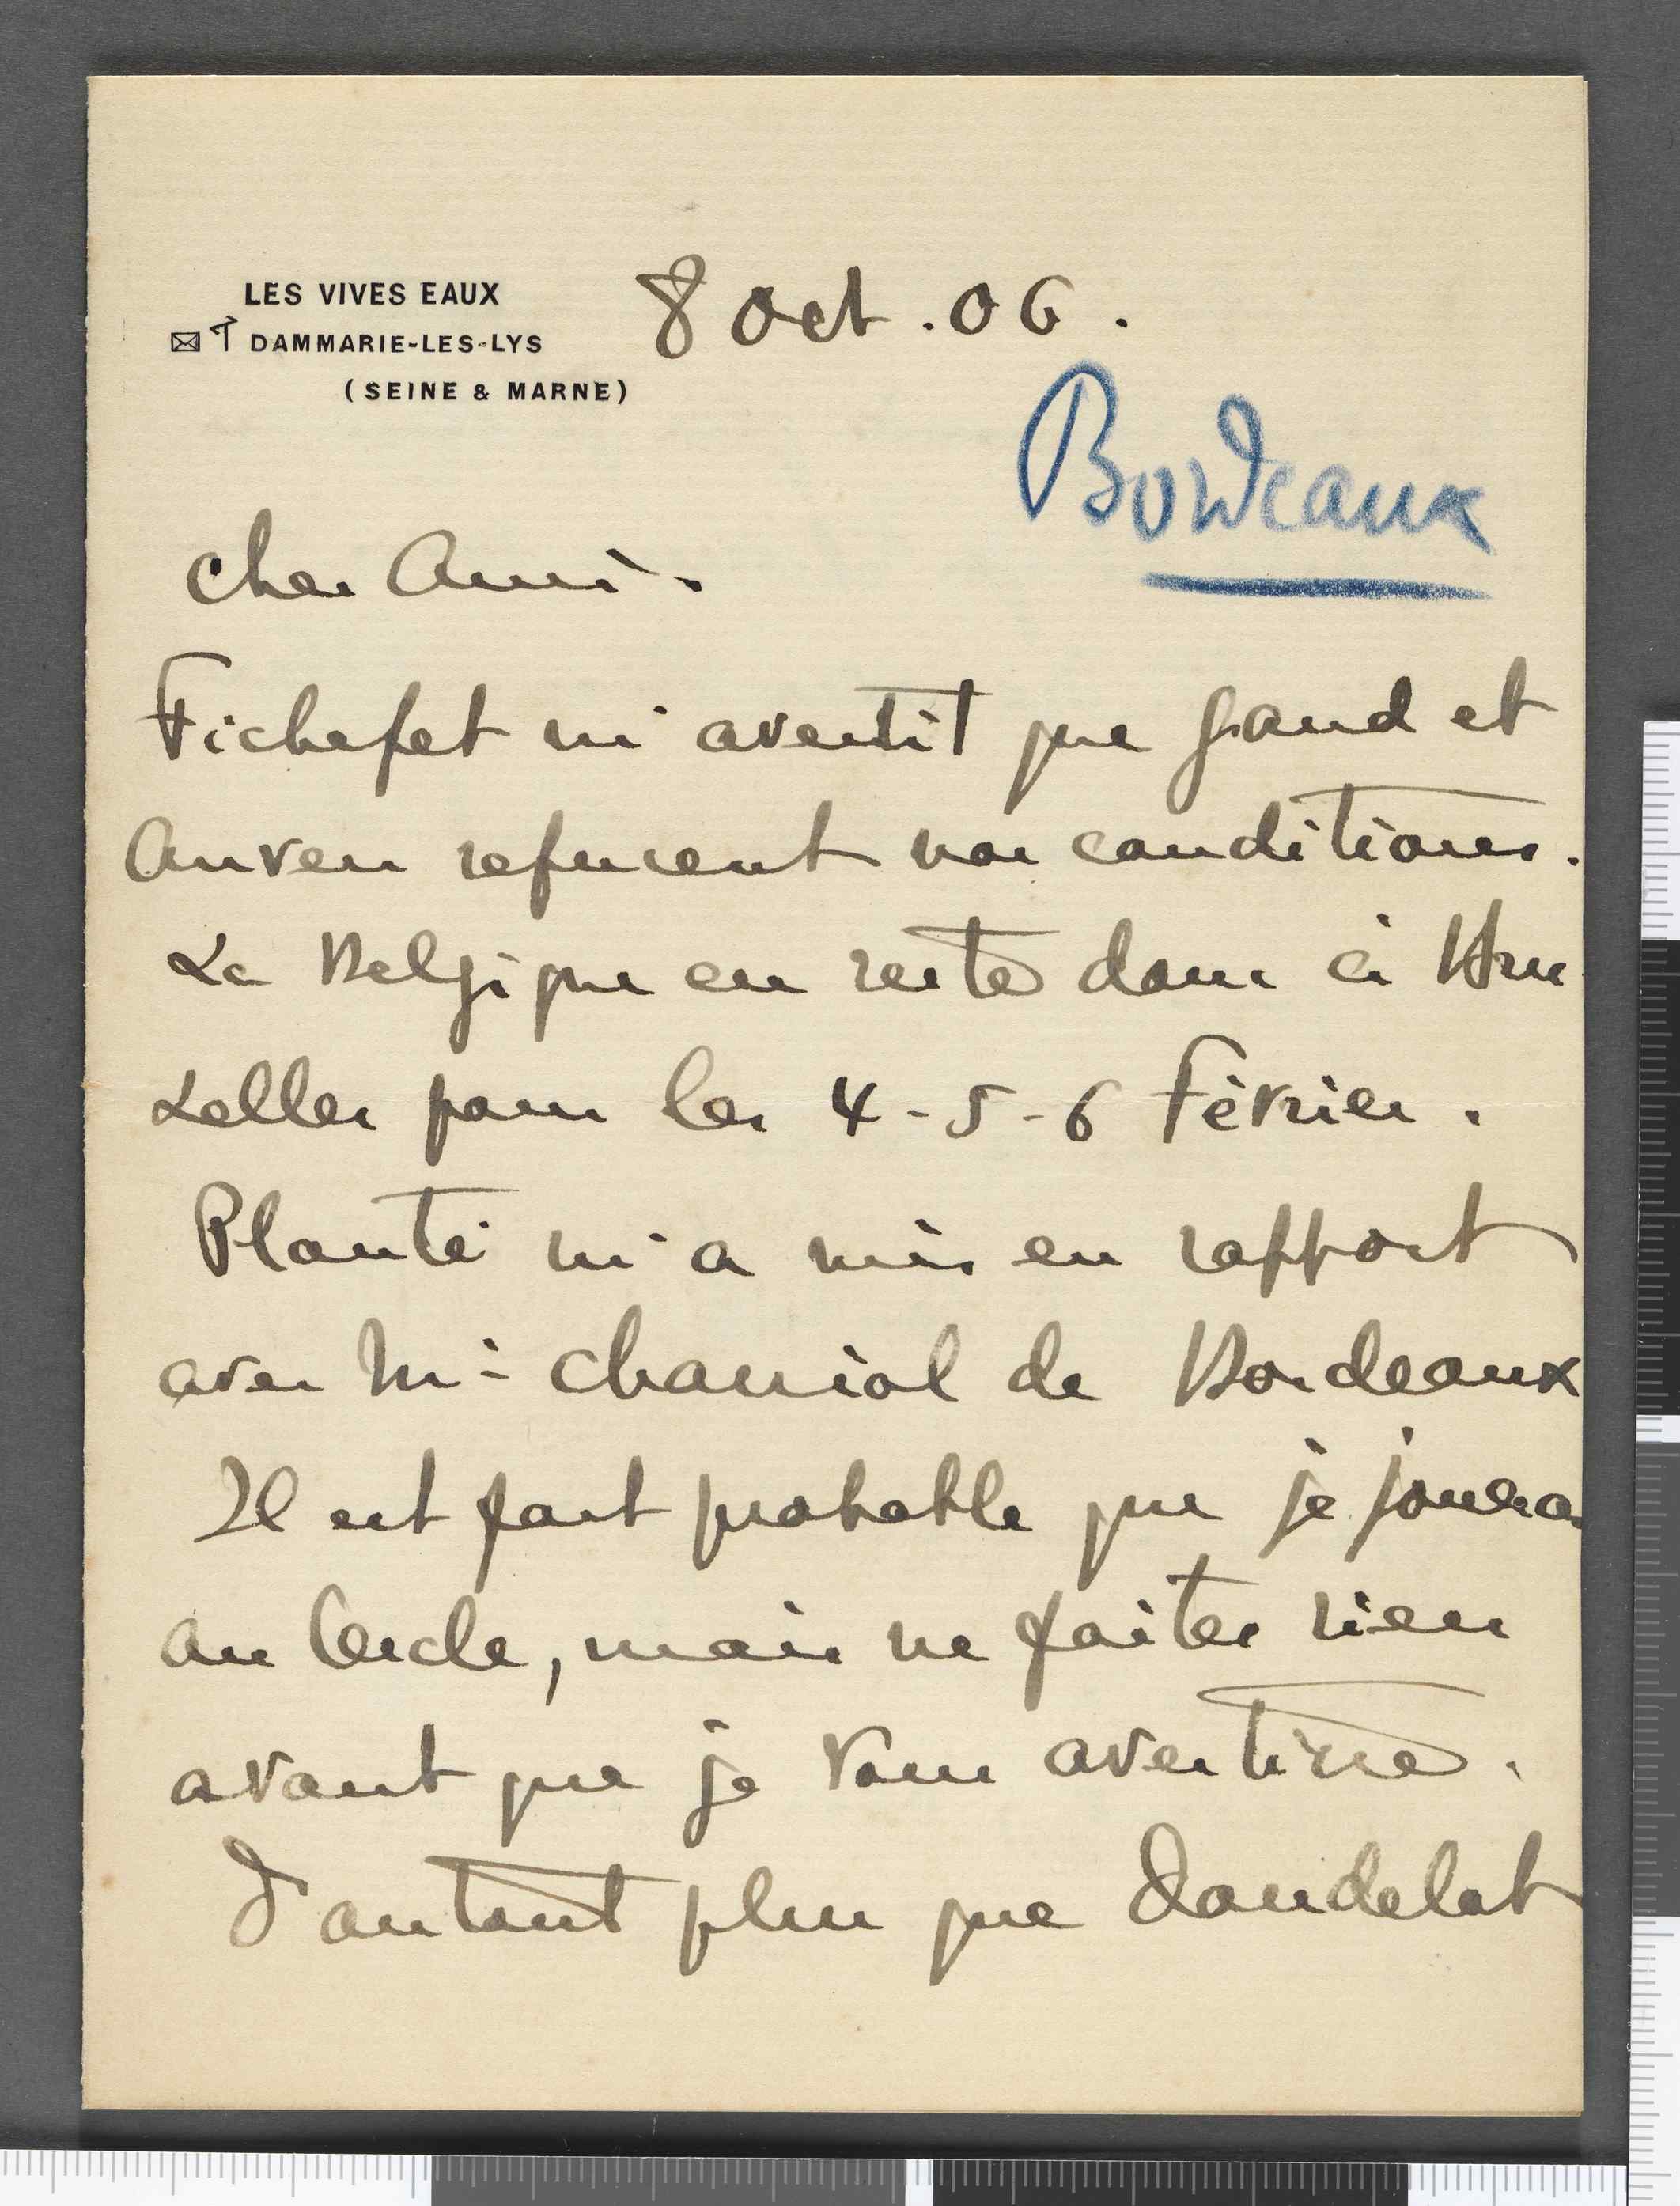 LES VIVES EAUX
DAMMARIE-LES-LYS
(SEINE & MARNE)
8 Oct. 06.
Bordeaux
Cher Ami.
Fichefet m'avertit que Gand et
Anvers refusent nos conditions.
La Belgique en reste donc à Bru
xelles pour les 4-5-6 Février.
Planté m'a mis en rapport
avec Mr Chauriol de Bordeaux
Il est fort probable que je jouerai
au Cercle, mais ne faites rien
avant que je vous avertisse.
D'autant plus que Dandelot